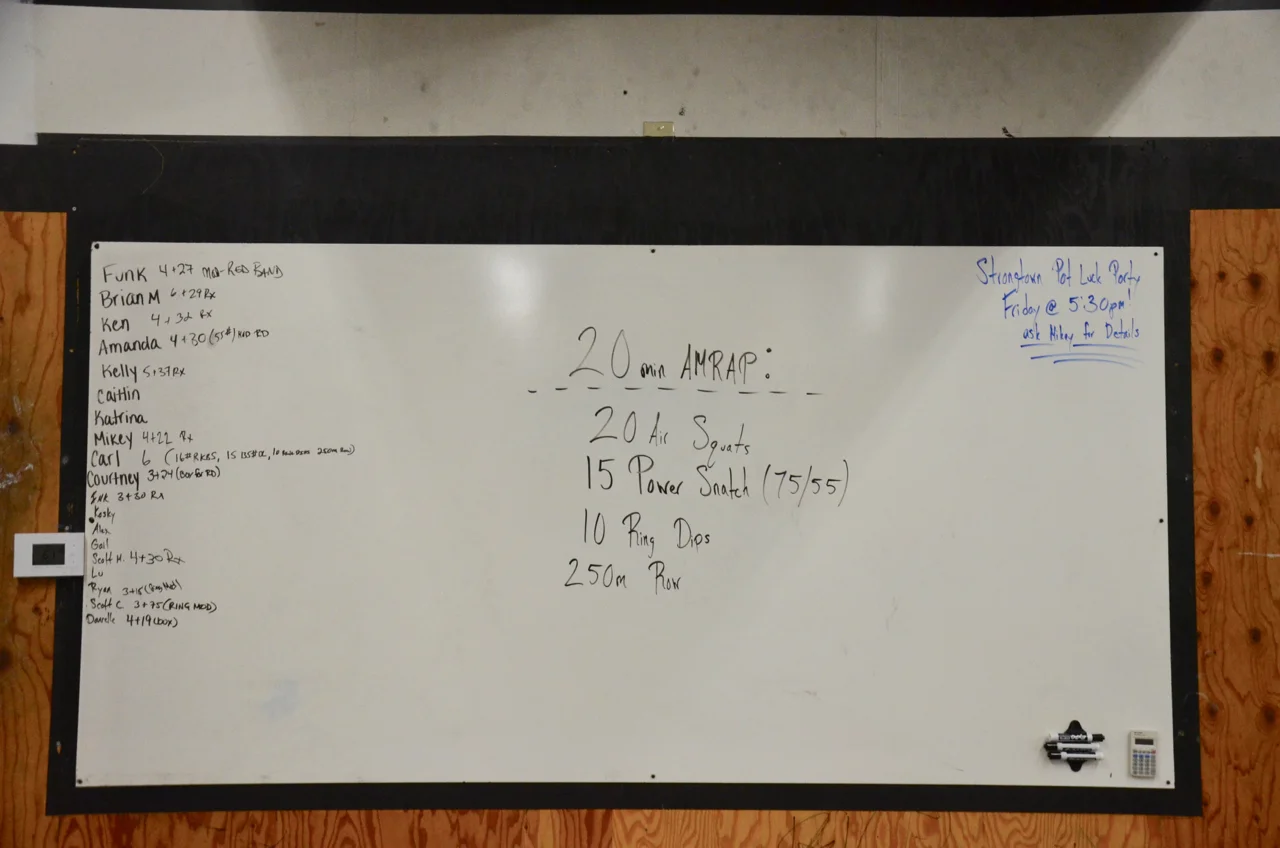 Funk 4+27 Mod-RED BAND
Brian M 6+29 Rx
Ken 4+32 Rx
Amanda 4+30 (55#)
Kelly 5+37 Rx
Caitlin
Katrina
Mikey 4+22 Rx
Carl 6 (16# RKBS, 15 250m Row)
Courtney 3+24
3+30 Rx
Kosky
Alex
Gail
Scott H. 4+30 Rx
Lu
Ryan 3+18
Scott C 3+75 (RING MOD)
Danielle 4+19 (box)
20 min AMRAP:
20 Air Squats
15 Power Snatch (75/55)
10 Ring Dips
250m Row
Strongtown Pot Luck Party
Friday @ 5:30pm!
ask Mikey for Details